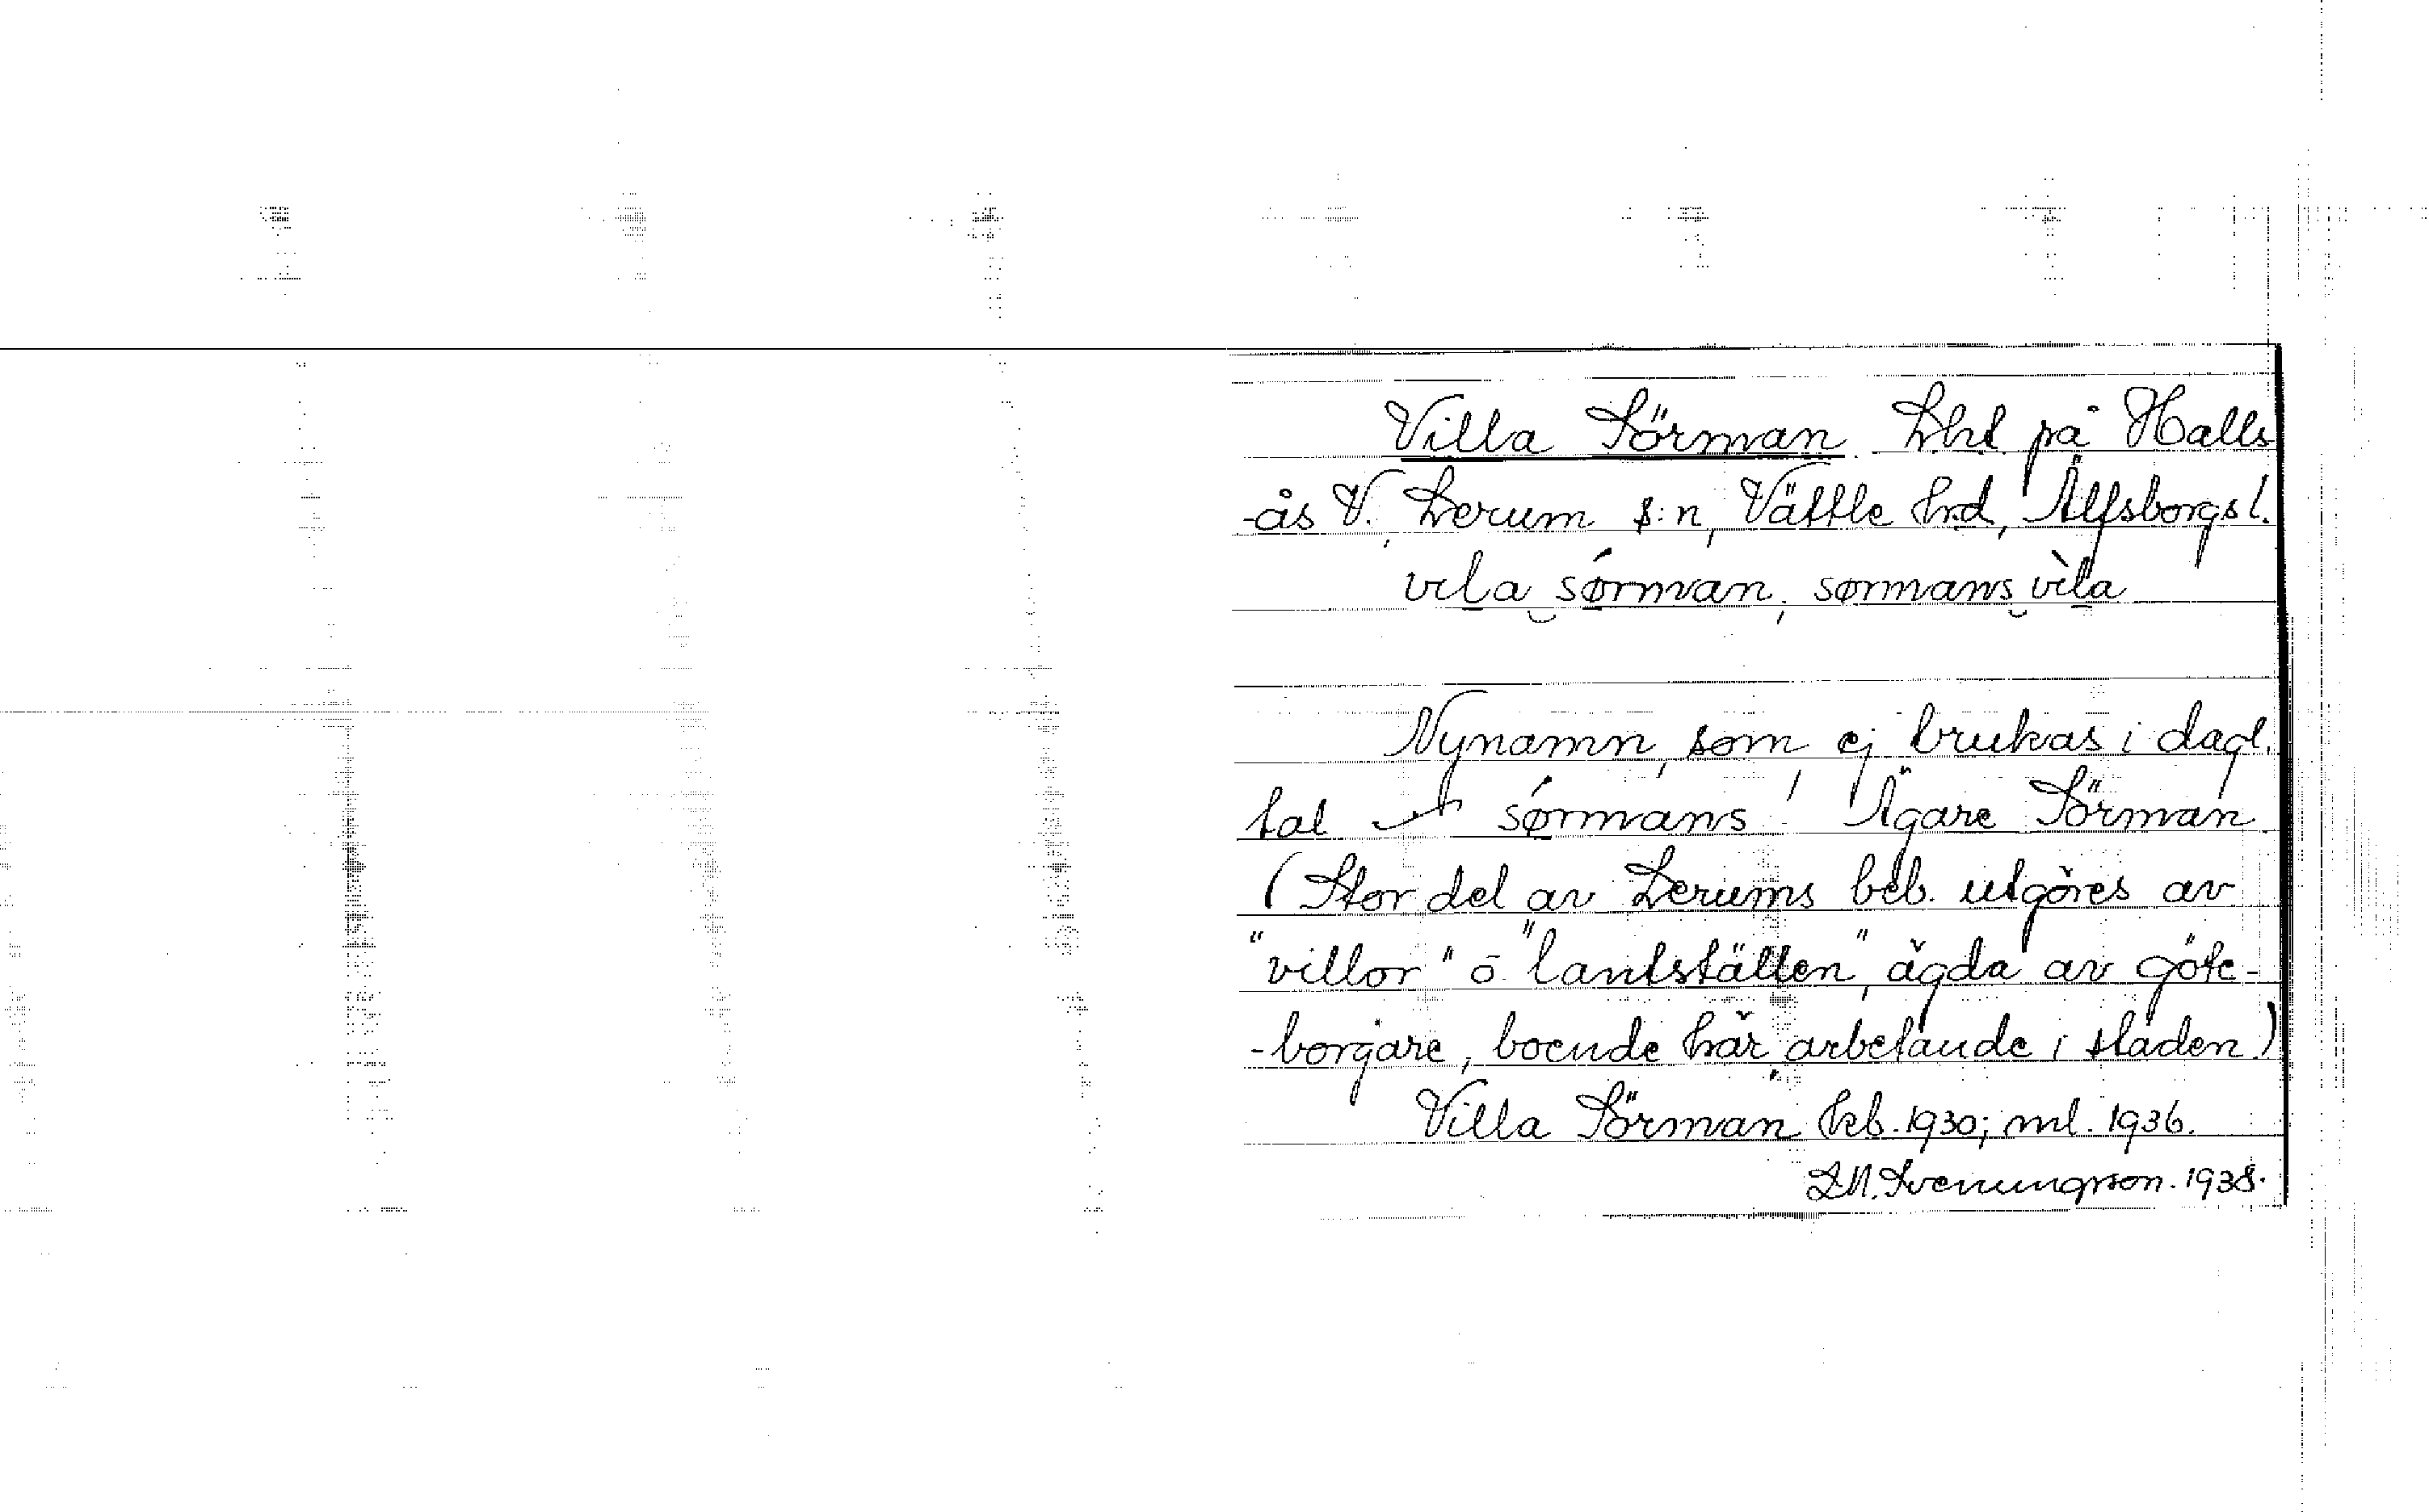 Villa Sörman Lht på Halls
-ås V. Lerum s:n, Vättle hrd, Älfsborgs l.
vila sørman, sørmans vìla
Nynamn, som ej brukas i dagl.
tal sørmans! Ägare Sörman
(Stor del av Lerums beb. utgöres av
"villor" o "lantställen", ägda av göte-
-borgare, boende här arbetande i staden)
Villa Sörman kb. 1930; ml. 1936.
Svenungsson. 1938.